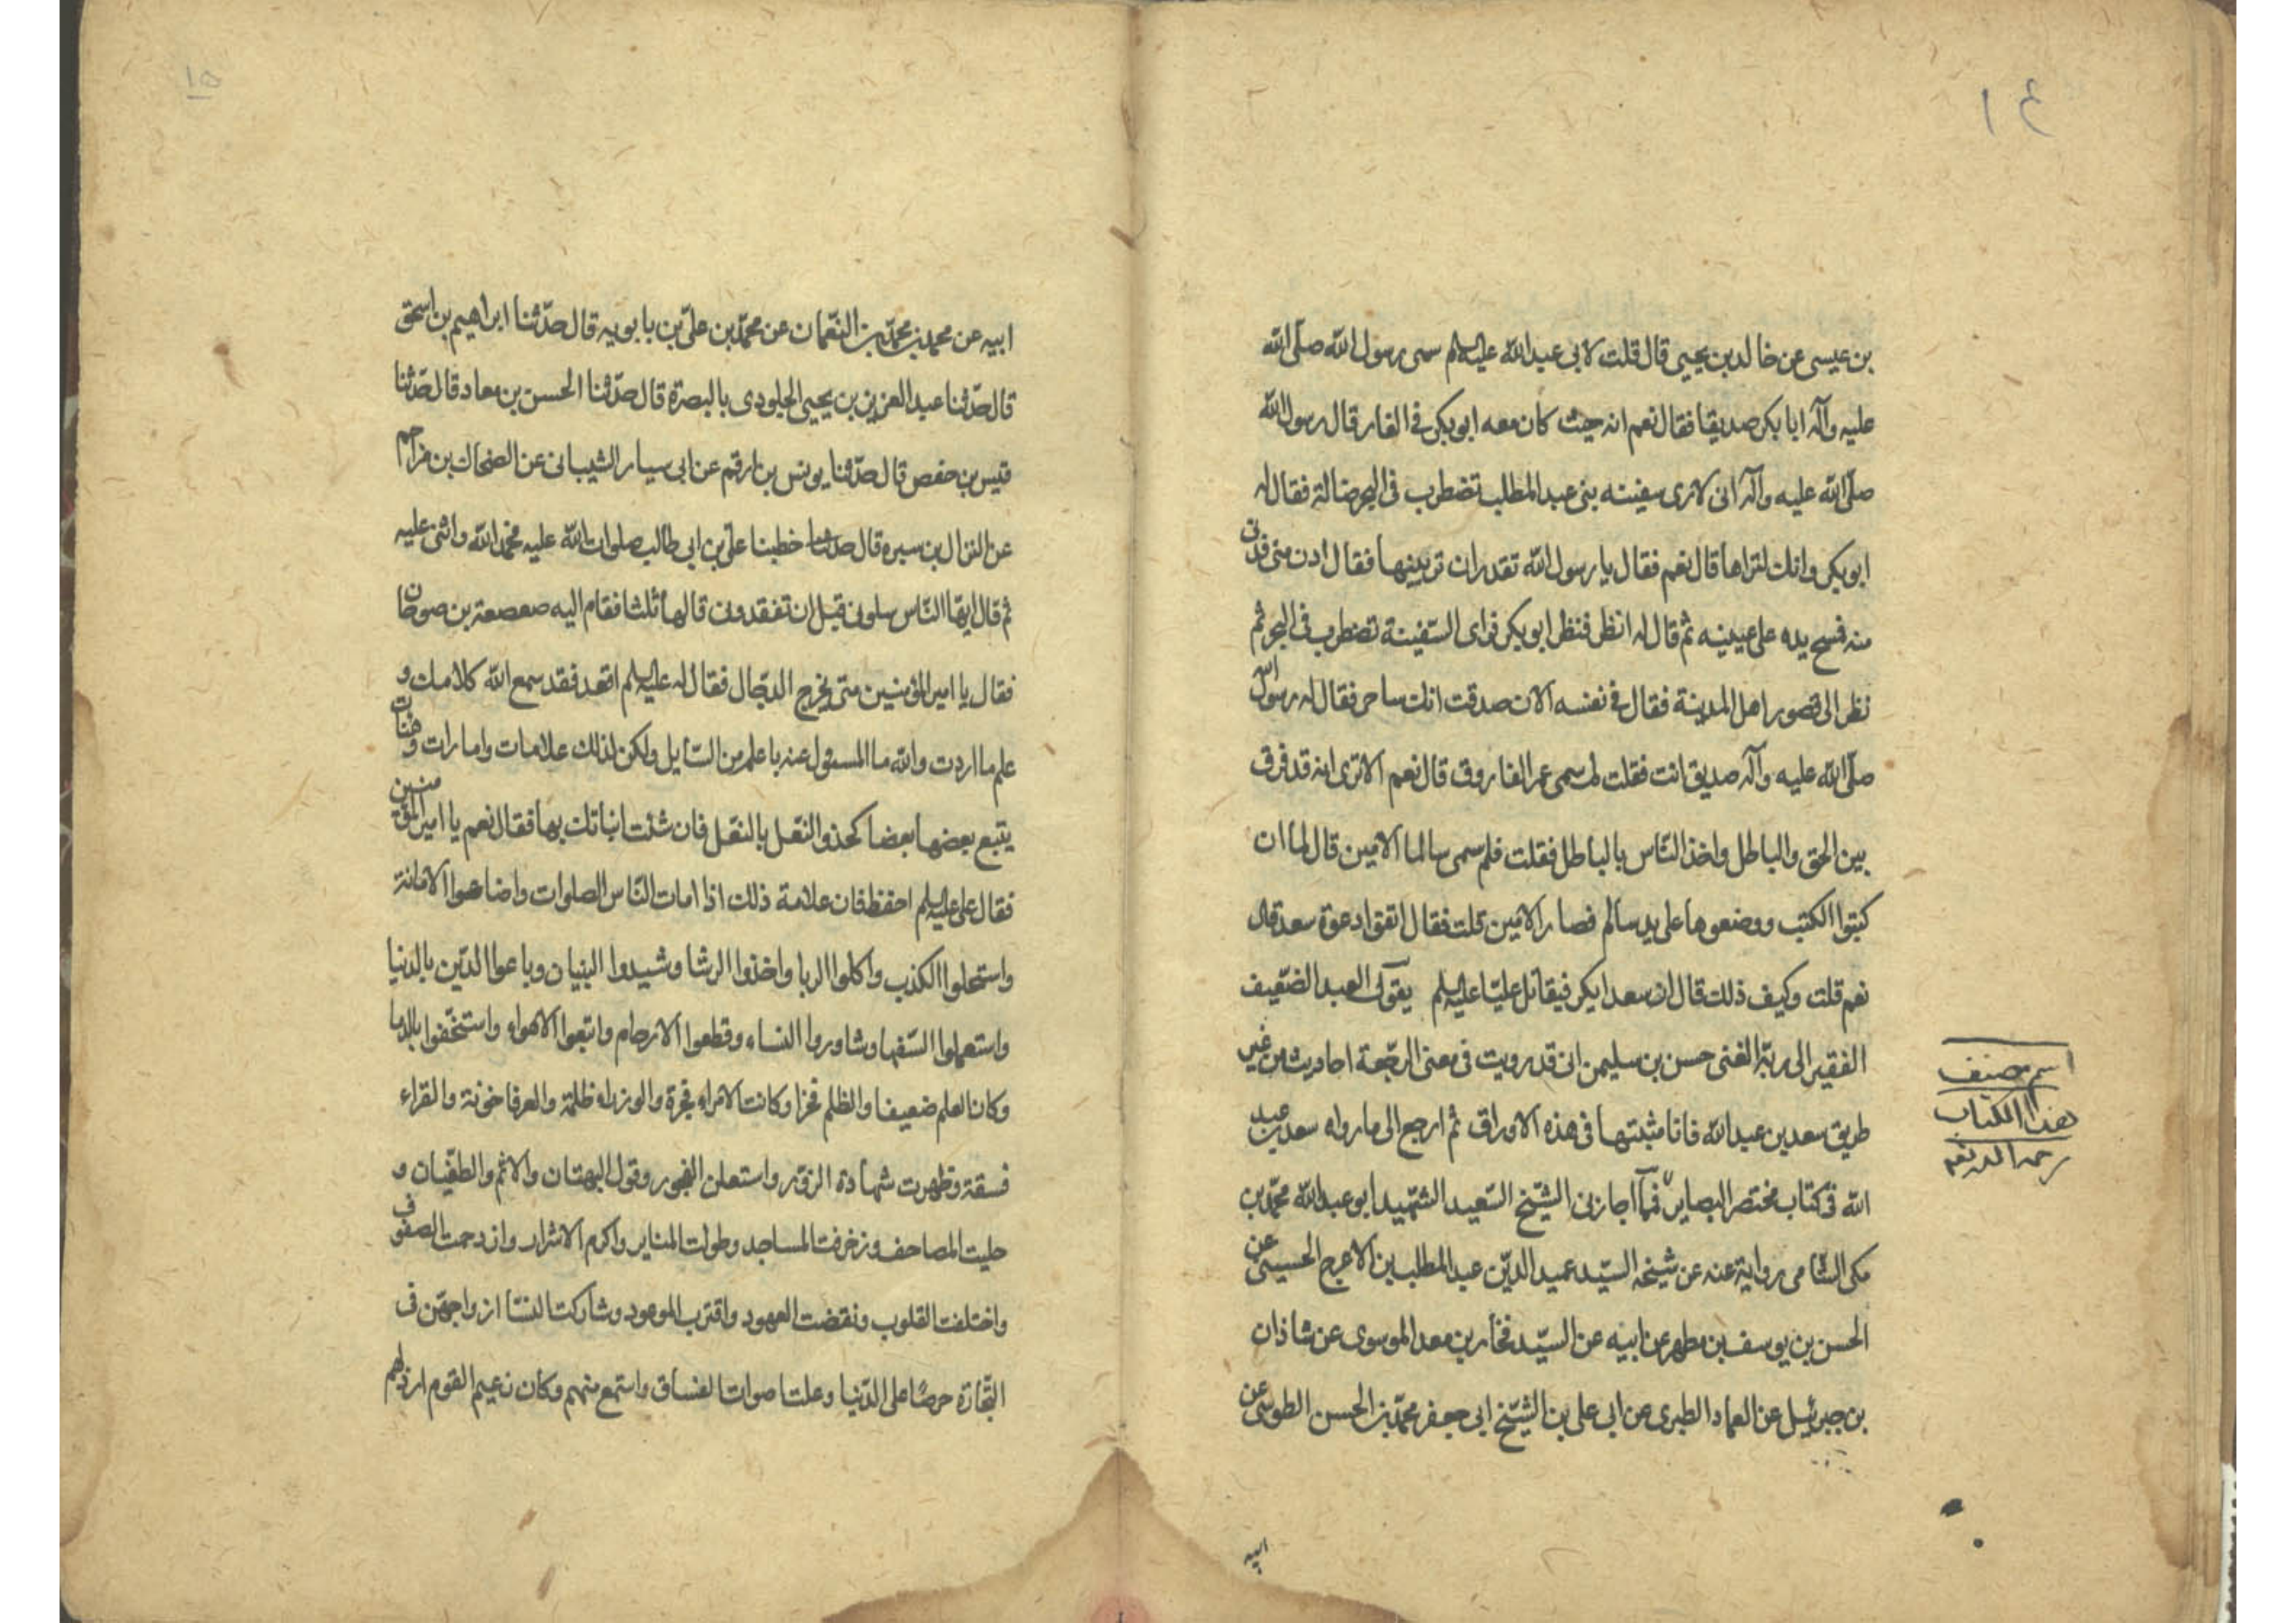 ١٤
بن عيسى عن خالد بن يحيى قال قلت لابى عبد الله عليه السلم سمى رسول الله صلّى الله
عليه وآله ابا بكر صديقا فقال نعم انه حيث كان معه ابو بكر فى الغار قال رسول الله
صلّى الله عليه وآله انى لارى سفينه بنى عبد المطلب تضطرب فى البحر ضالة فقال له
ابو بكر وانك لتراها قال نعم فقال يا رسول الله تقدر ان ترينيها فقال ادن منى فدنى
منه فمسح يده على عينيه ثم قال له انظر فنظر ابو بكر فراى السّفينة تضطرب فى البحر ثم
نظر الى قصور اهل المدينة فقال فى نفسه الان صدقت انك ساحر فقال له رسول الله
صلّى الله عليه وآله صديق انت فقلت لم سمى عمر الفاروق قال نعم الا ترى انه قد فرق
بين الحق والباطل واخذ النّاس بالباطل فقلت فلم سمى سالما الامين قال لما ان
كتبوا الكتب ووضعوها على يد سالم فصار الامين قلت فقال اتقوا دعوة سعد قال
نعم قلت وكيف ذلك قال ان سعدا يكر فيقاتل عليّا عليه السلم يقول العبد الضّعيف
الفقير الى ربّه الغنى حسن بن سليمن انى قد رويت فى معنى الرّجعة احاديث من غير
طريق سعد بن عبد الله فانا مثبتها فى هذه الاوراق ثم ارجع الى ما رواه سعد بن عبد
الله فى كتاب مختصر البصاير فممّا اجازنى الشّيخ السّعيد الشّهيد ابو عبد الله محمّد بن
مكى الشّامى رواية عنه عن شيخه السّيد عميد الدّين عبد المطلب بن الاعرج الحسينى عن
الحسن بن يوسف بن مطهر عن ابيه عن السّيد فخار بن معد الموسوى عن شاذان
بن جبرئيل عن العماد الطبرى عن ابى على بن الشّيخ ابى جعفر محمّد بن الحسن الطوسى عن
ابيه
اسم مصنف
هذا الكتاب
رحمه الله
١٥
ابيه عن محمد بن محمّد بن النّعمان عن محمّد بن علىّ بن بابويه قال حدّثنا ابراهيم بن اسحق
قال حدّثنا عبد العزيز بن يحيى الجلودى بالبصرة قال حدّثنا الحسن بن معاد قال حدّثنا
قيس بن حفص قال حدّثنا يونس بن ارقم عن ابى سيار الشيبانى عن الضحاك بن مزاحم
عن النزال بن سبره قال حدثنا خطبنا علىّ بن ابى طالب صلوات الله عليه فحمد الله واثنى عليه
ثم قال ايها النّاس سلونى قبل ان تفقدونى قالها ثلثا فقام اليه صعصعة بن صوحان
فقال يا امير المؤمنين متى يخرج الدجّال فقال له عليه السلم اقعد فقد سمع الله كلامك و
علم ما اردت والله ما المسئول عنه باعلم من السّايل ولكن لذلك علامات وامارات وهنات
يتبع بعضها بعضا كحذو النعل بالنعل فان شئت انباتك بها فقال نعم يا امير المؤمنين
فقال على عليه السلم احفظ فان علامة ذلك اذا امات النّاس الصلوات واضاعوا الامانة
واستحلوا الكذب واكلوا الربا واخذوا الرشا وشيدوا البنيان وباعوا الدّين بالدنيا
واستعملوا السّفها وشاوروا النساء وقطعوا الارحام واتبعوا الاهواء واستخّفوا بالدما
وكان العلم ضعيفا والظلم فخرا وكانت الامراء فجرة والوزراء ظلمة والعرفا خونة والقراء
فسقة وظهرت شهادة الزور واستعلن الفجور وقول البهتان والاثم والطغيان و
حليت المصاحف وزخرفت المساجد وطولت المناير واكرم الاشرار وازدحمت الصفوف
واختلفت القلوب ونقضت العهود واقترب الموعود وشاركت النسّا ازواجهن فى
التّجارة حرصًا على الدّنيا وعلت اصوات الفساق واستمع منهم وكان زعيم القوم ارذلهم